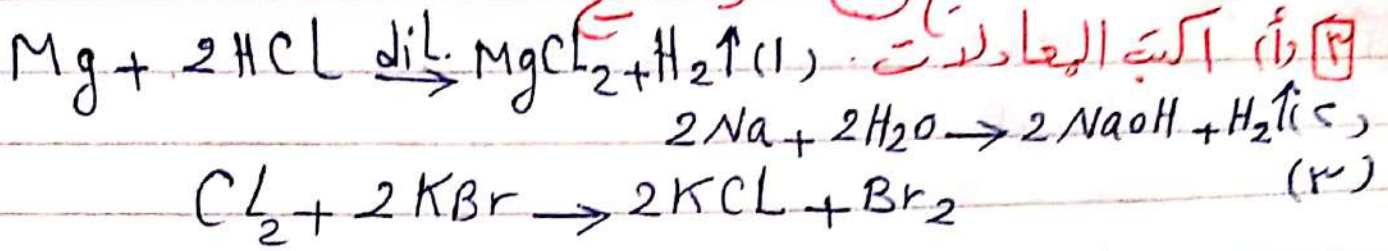 [٣] (أ) اكتب المعادلات. (١) Mg + 2HCl dil.→ MgCl2 + H2↑
(٢) 2Na + 2H2O → 2NaOH + H2↑
(٣)
Cl2 + 2KBr → 2KCL + Br2